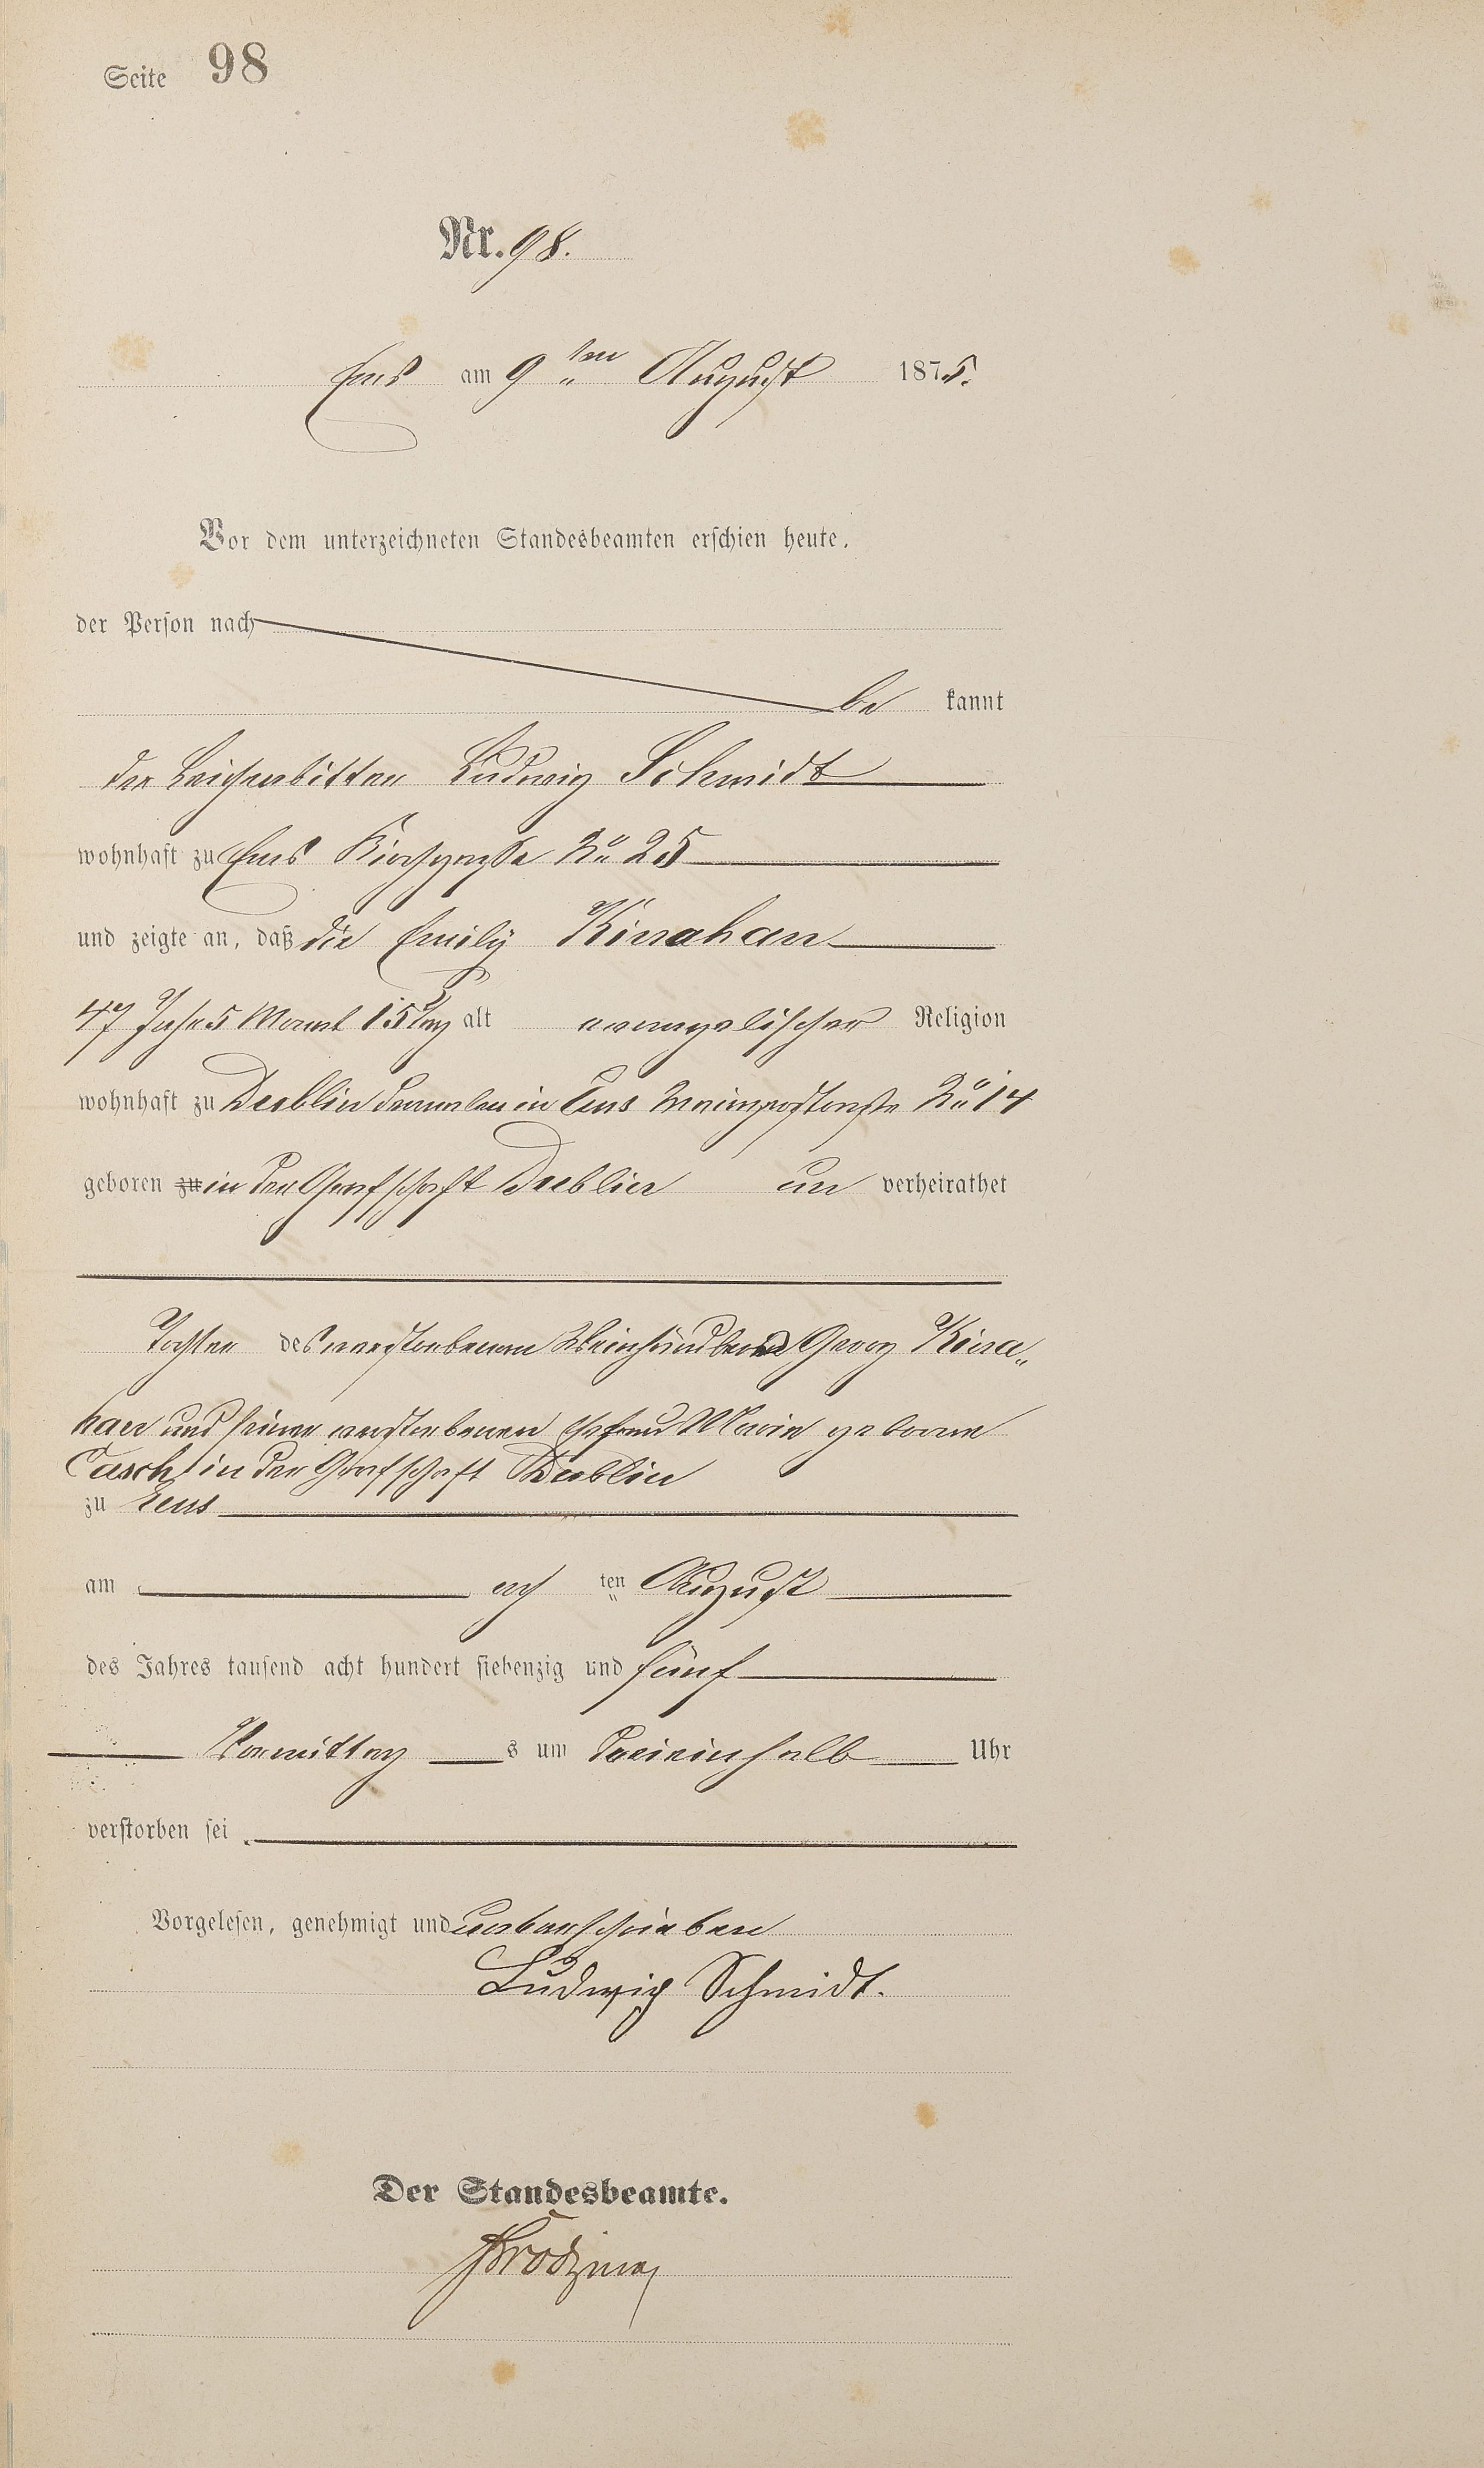 Seite 98
Nr. 98.
Ems am 9ten August 1875.
Vor dem unterzeichneten Standesbeamten erschien heute,
der Person nach
be kannt
der Leichenbitter Ludwig Schmidt
wohnhaft zu Ems Kirchgasse No 25
und zeigte an, daß die Emily Kinahan
47 Jahr 5 Monat 15 Tag alt evangelischer Religion
wohnhaft zu Dublin dermalen in Ems No 14
geboren zu in der Grafschaft Dublin un verheirathet
Tochter des verstorbenen Weinhändlers Georg Kina„
han und seiner verstorbenen Ehefrau Marie geborne
in der Grafschaft Dublin
zu Ems
am acht ten August
des Jahres tausend acht hundert siebenzig und fünf
Vormittag s um dreieinhalb Uhr
verstorben sei
Vorgelesen, genehmigt und unterschrieben
Ludwig Schmidt.
Der Standesbeamte.